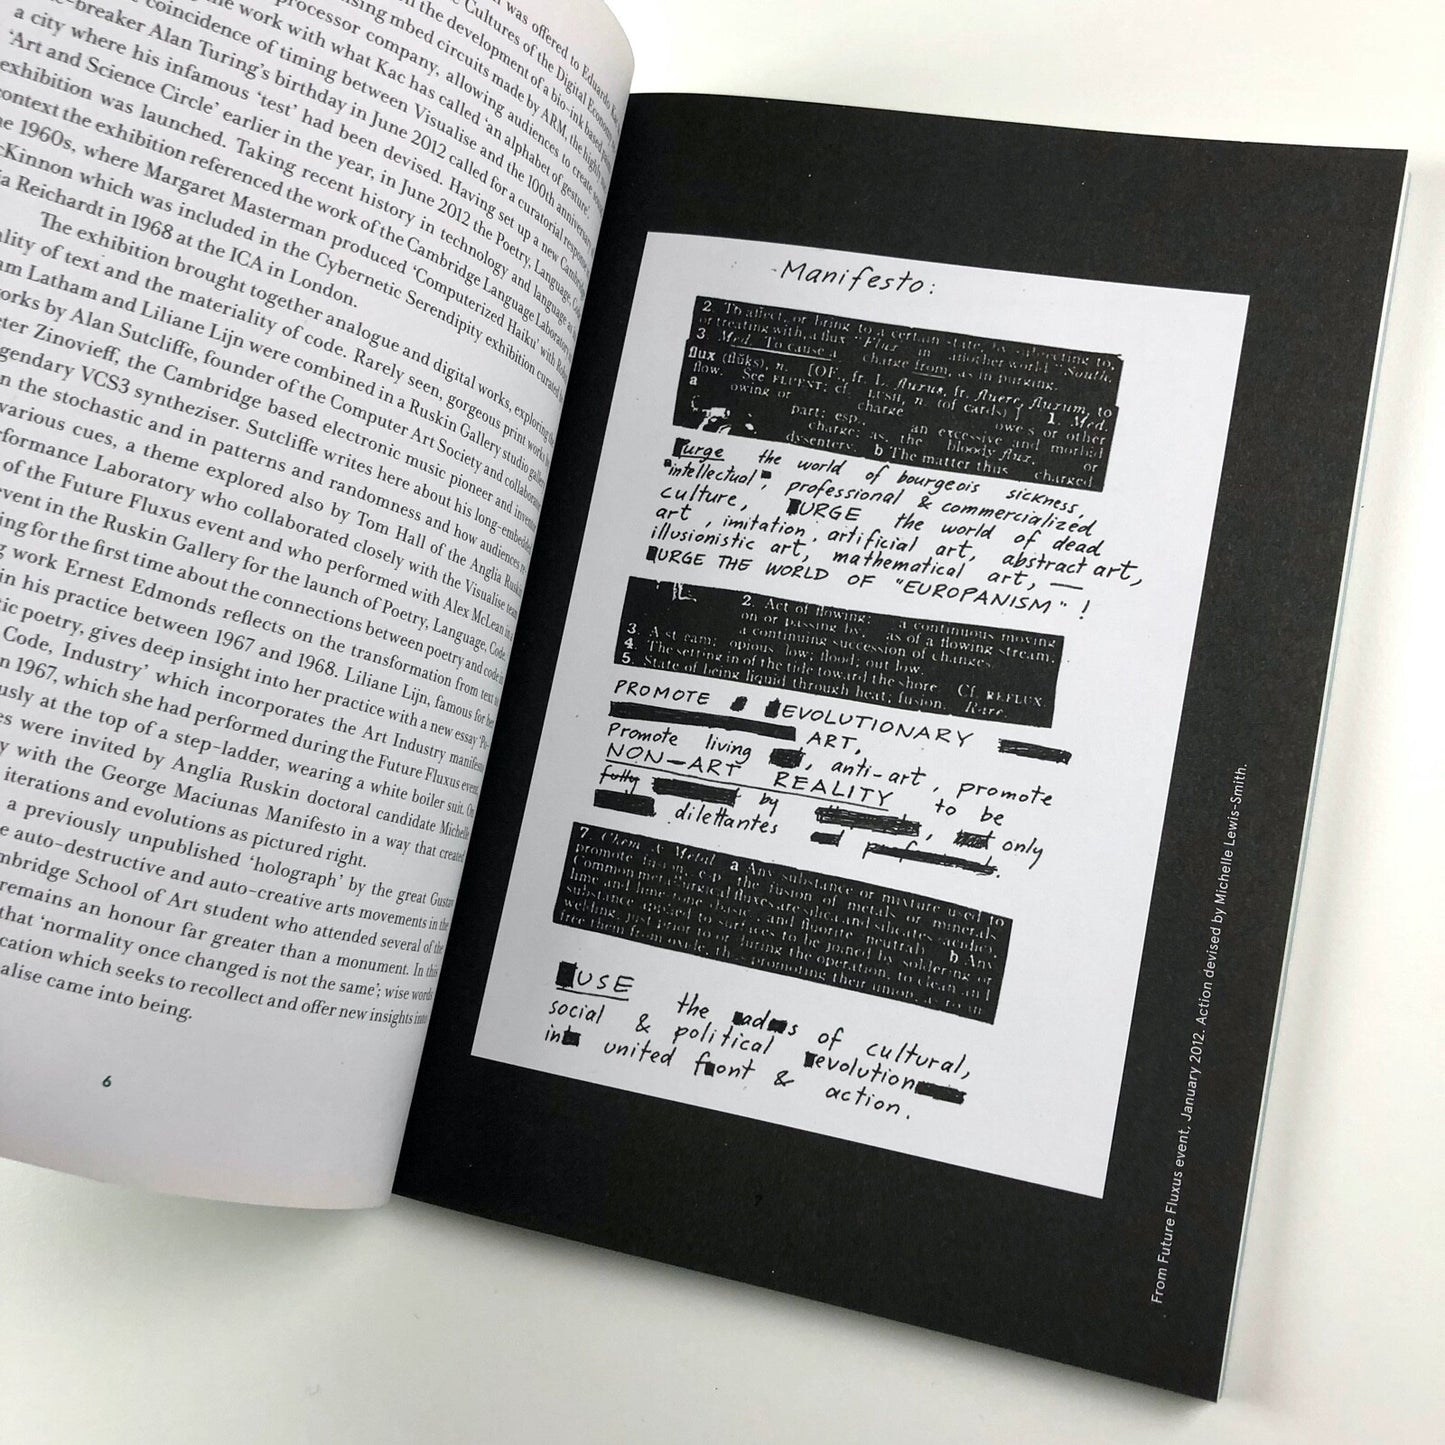 was offered to Eduardo
Cultures of the Digital
on the development of a bio-ink based
sing mbed circuits made by ARM, the highly
processor company, allowing audiences to create
the work with what Kac has called 'an alphabet of gesture'.
coincidence of timing between Visualise and the 100th anniversary
-breaker Alan Turing's birthday in June 2012 called for a curatorial
a city where his infamous 'test' had been devised. Having set up a new
'Art and Science Circle' earlier in the year, in June 2012 the Poetry, Language, Code
exhibition was launched. Taking recent history in technology and language as
context the exhibition referenced the work of the Cambridge Language Laboratory
1960s, where Margaret Masterman produced 'Computerized Haiku' with
cKinnon which was included in the Cybernetic Serendipity exhibition curated
ia Reichardt in 1968 at the ICA in London.
The exhibition brought together analogue and digital works, exploring the
ality of text and the materiality of code. Rarely seen, gorgeous print works
am Latham and Liliane Lijn were combined in a Ruskin Gallery studio
works by Alan Sutcliffe, founder of the Computer Art Society and
eter Zinovieff, the Cambridge based electronic music pioneer and
gendary VCS3 syntheziser. Sutcliffe writes here about his long-embedded
n the stochastic and in patterns and randomness and how audiences
various cues, a theme explored also by Tom Hall of the Anglia
rformance Laboratory who collaborated closely with the Visualise team
of the Future Fluxus event and who performed with Alex McLean in
event in the Ruskin Gallery for the launch of Poetry, Language, Code.
ing for the first time about the connections between poetry and code
g work Ernest Edmonds reflects on the transformation from text
in his practice between 1967 and 1968. Liliane Lijn, famous for her
tic poetry, gives deep insight into her practice with a new essay
Code, Industry' which incorporates the Art Industry manifesto
n 1967, which she had performed during the Future Fluxus event,
usly at the top of a step-ladder, wearing a white boiler suit.
es were invited by Anglia Ruskin doctoral candidate Michelle
y with the George Maciunas Manifesto in a way that created
iterations and evolutions as pictured right.
a previously unpublished 'holograph' by the great Gustav
e auto-destructive and auto-creative arts movements in the
mbridge School of Art student who attended several of the
remains an honour far greater than a monument. In this
that 'normality once changed is not the same'; wise words
cation which seeks to recollect and offer new insights into
alise came into being.
6
Manifesto:
2 To affect, or bring to a certain state, by subjecting to,
or treating with, a flux. "Flux in another world" South.
3 Med. To cause a charge from, as in purging.
flux (flŭks), n. [OF., fr. L. fluxus, fr. fluere, fluxum, to
flow. See FLUENT; cf. FLUSH, n. (of cards)] 1. Med.
a owing or owe s or other
part: esp. an excessive and morbid
charge; as, the bloody flux, or
dysentery. b The matter thus charged
urge the world of bourgeois sickness,
"intellectual", professional & commercialized
culture, URGE the world of dead
art, imitation, artificial art, abstract art,
illusionistic art, mathematical art, —
URGE THE WORLD OF "EUROPANISM"!
2. Act of flowing: a continuous moving
on or passing by, as of a flowing stream;
a continuing succession of changes.
3. A st eam; opious low; flood; out low.
4. The setting in of the tide toward the shore. Cf. REFLUX.
5. State of being liquid through heat; fusion. Rare.
PROMOTE EVOLUTIONARY
ART,
Promote living , anti-art, promote
NON-ART REALITY to be
fully by , only
dilettantes
7. Chem. & Metal. a Any substance or mixture used to
promote fusion, esp. the fusion of metals or minerals.
Common metallurgical fluxes are silica and silicates (acidic),
lime and limestone (basic), and fluorite (neutral). b Any
substance applied to surfaces to be joined by soldering or
welding, just prior to or during the operation, to clean and
free them from oxide, thus promoting their union, as
USE the ad s of cultural,
social & political evolution
in united f ont & action.
From Future Fluxus event, January 2012. Action devised by Michelle Lewis-Smith.